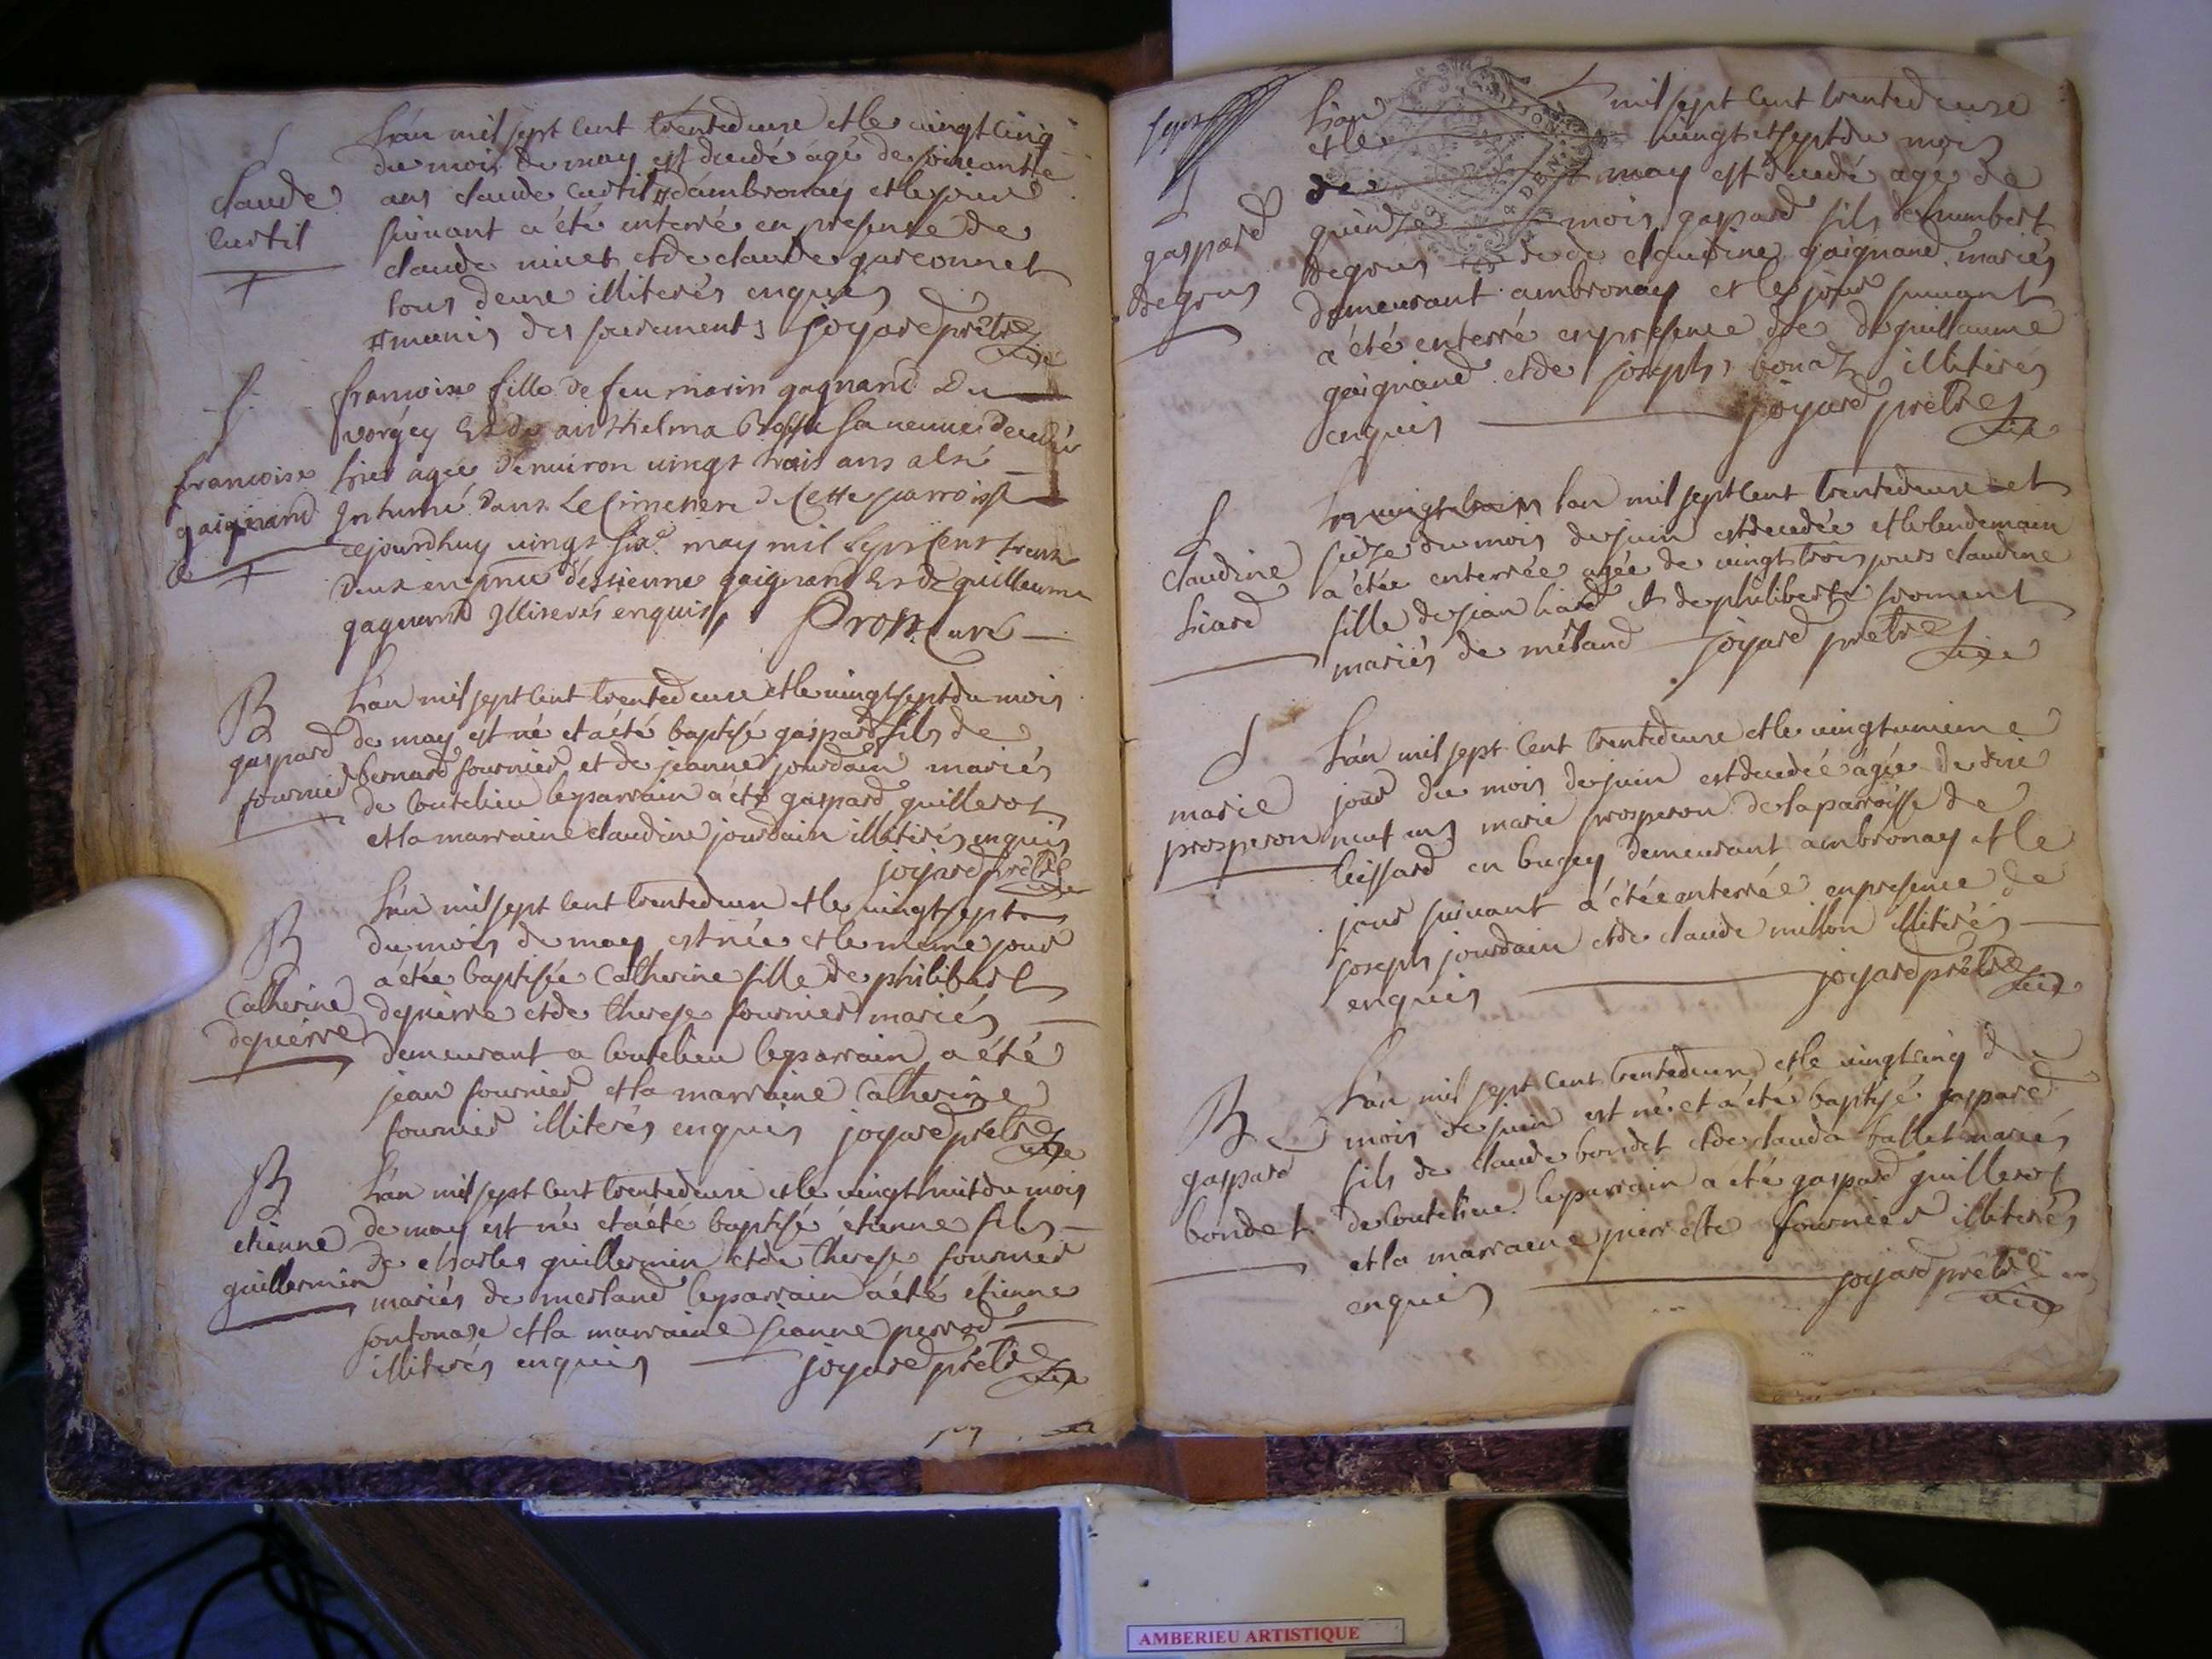 S
claude
curtil
L'an mil sept cent trentedeux et le vingt cinq
du mois de may est decedé agé de soixante
ans claude curtil # d'ambronay et le jour
suivant a été enterré en presence de
claude et de claude garconnet
tous deux illiterés enquis
# munis des sacrements joyard prêtre vice
S
francoise
gaignand
francoise fille de feu marin gagnand du
vorgey et de anthelma sa veuve decedée
hier agée d'environ vingt trois ans a esté
Inhumé dans Le Cimetiere de Cette parroisse
cejourdhuy vingt six may mil sept cent trente
deux en pnce d'estienne gaignand et de guillaume
gagnand Illiterés enquis, Curé
B
gaspard
fournier
L'an mil sept cent trentedeux et le vingt sept du mois
de may est né et a été baptisé gaspard fils de
bernard fournier et de jeanne jourdain mariés
de coutelieu le parrain a été gaspard guillerot
et la marraine claudine jourdain illiterés enquis
joyard prêtre vice
B
Catherine
depierre
L'an mil sept cent trentedeux et le vingt sept
du mois de may est née et le meme jour
a étée baptisée Catherine fille de philibert
depierre et de therese fournier mariés
demeurant a coutelieu le parrain a été
jean fournier et la marraine Catherine
fournier illiterés enquis joyard prêtre vice
B
etienne
guillermin
L'an mil sept cent trentedeux et le vingt huit du mois
de may est né et a été baptisé étienne fils
de charles guillermin et de therese fournier
mariés de merland le parrain a été étienne
fontonase et la marraine jeanne perrod
illiterés enquis joyard prêtre vice
S
gaspard
degrus
L'an mil sept cent trentedeux
et le vingt et sept du mois
de may est decedé agé de
quinze mois gaspard fils de humbert
degrus et de claudine gaignand mariés
demeurant ambronay et le jour suivant
a été enterré en presence de guillaume
gaignand et de joseph bonaz illiterés
enquis joyard prêtre vice
S
claudine
liard
l'an mil sept cent trentedeux et
seize du mois de juin est decedée et le lendemain
a étée enterrée agée de vingt trois jours claudine
fille de jean liard et de philiberte froment
mariés de merland joyard prêtre vice
S
marie
prosperon
L'an mil sept cent trentedeux et le vingtunieme
jour du mois de juin est decedée agée de dix
neuf ans marie prosperon de la parroisse de
leissard en bugey demeurant ambronay et le
jour suivant a étée enterrée en presence de
joseph jourdain et de claude millon illiterés
enquis joyard prêtre vice
B
gaspard
bondet
L'an mil sept cent trentedeux et le vingt cinq du
mois de juin est né et a été baptisé gaspard
fils de claude bondet et de clauda ballet mariés
de coutelieu le parrain a été gaspard guillerot
et la marraine pierrette fournier illiterés
enquis joyard prêtre vice
AMBERIEU ARTISTIQUE